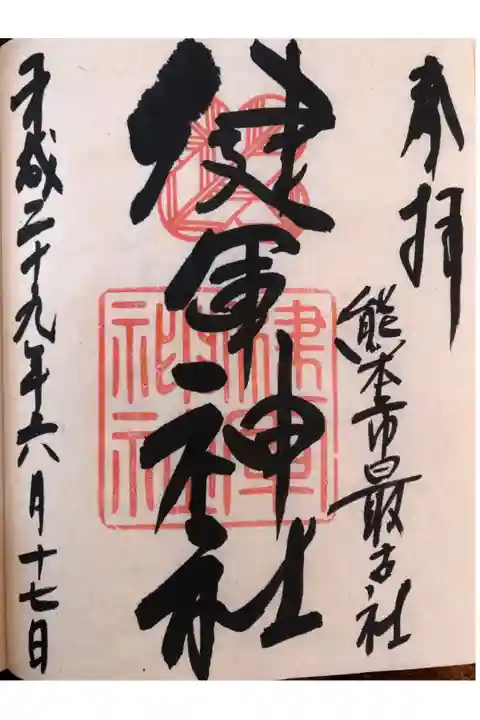 奉拝
熊本市最古社
健軍神社
平成二十九年六月十七日
健軍神社